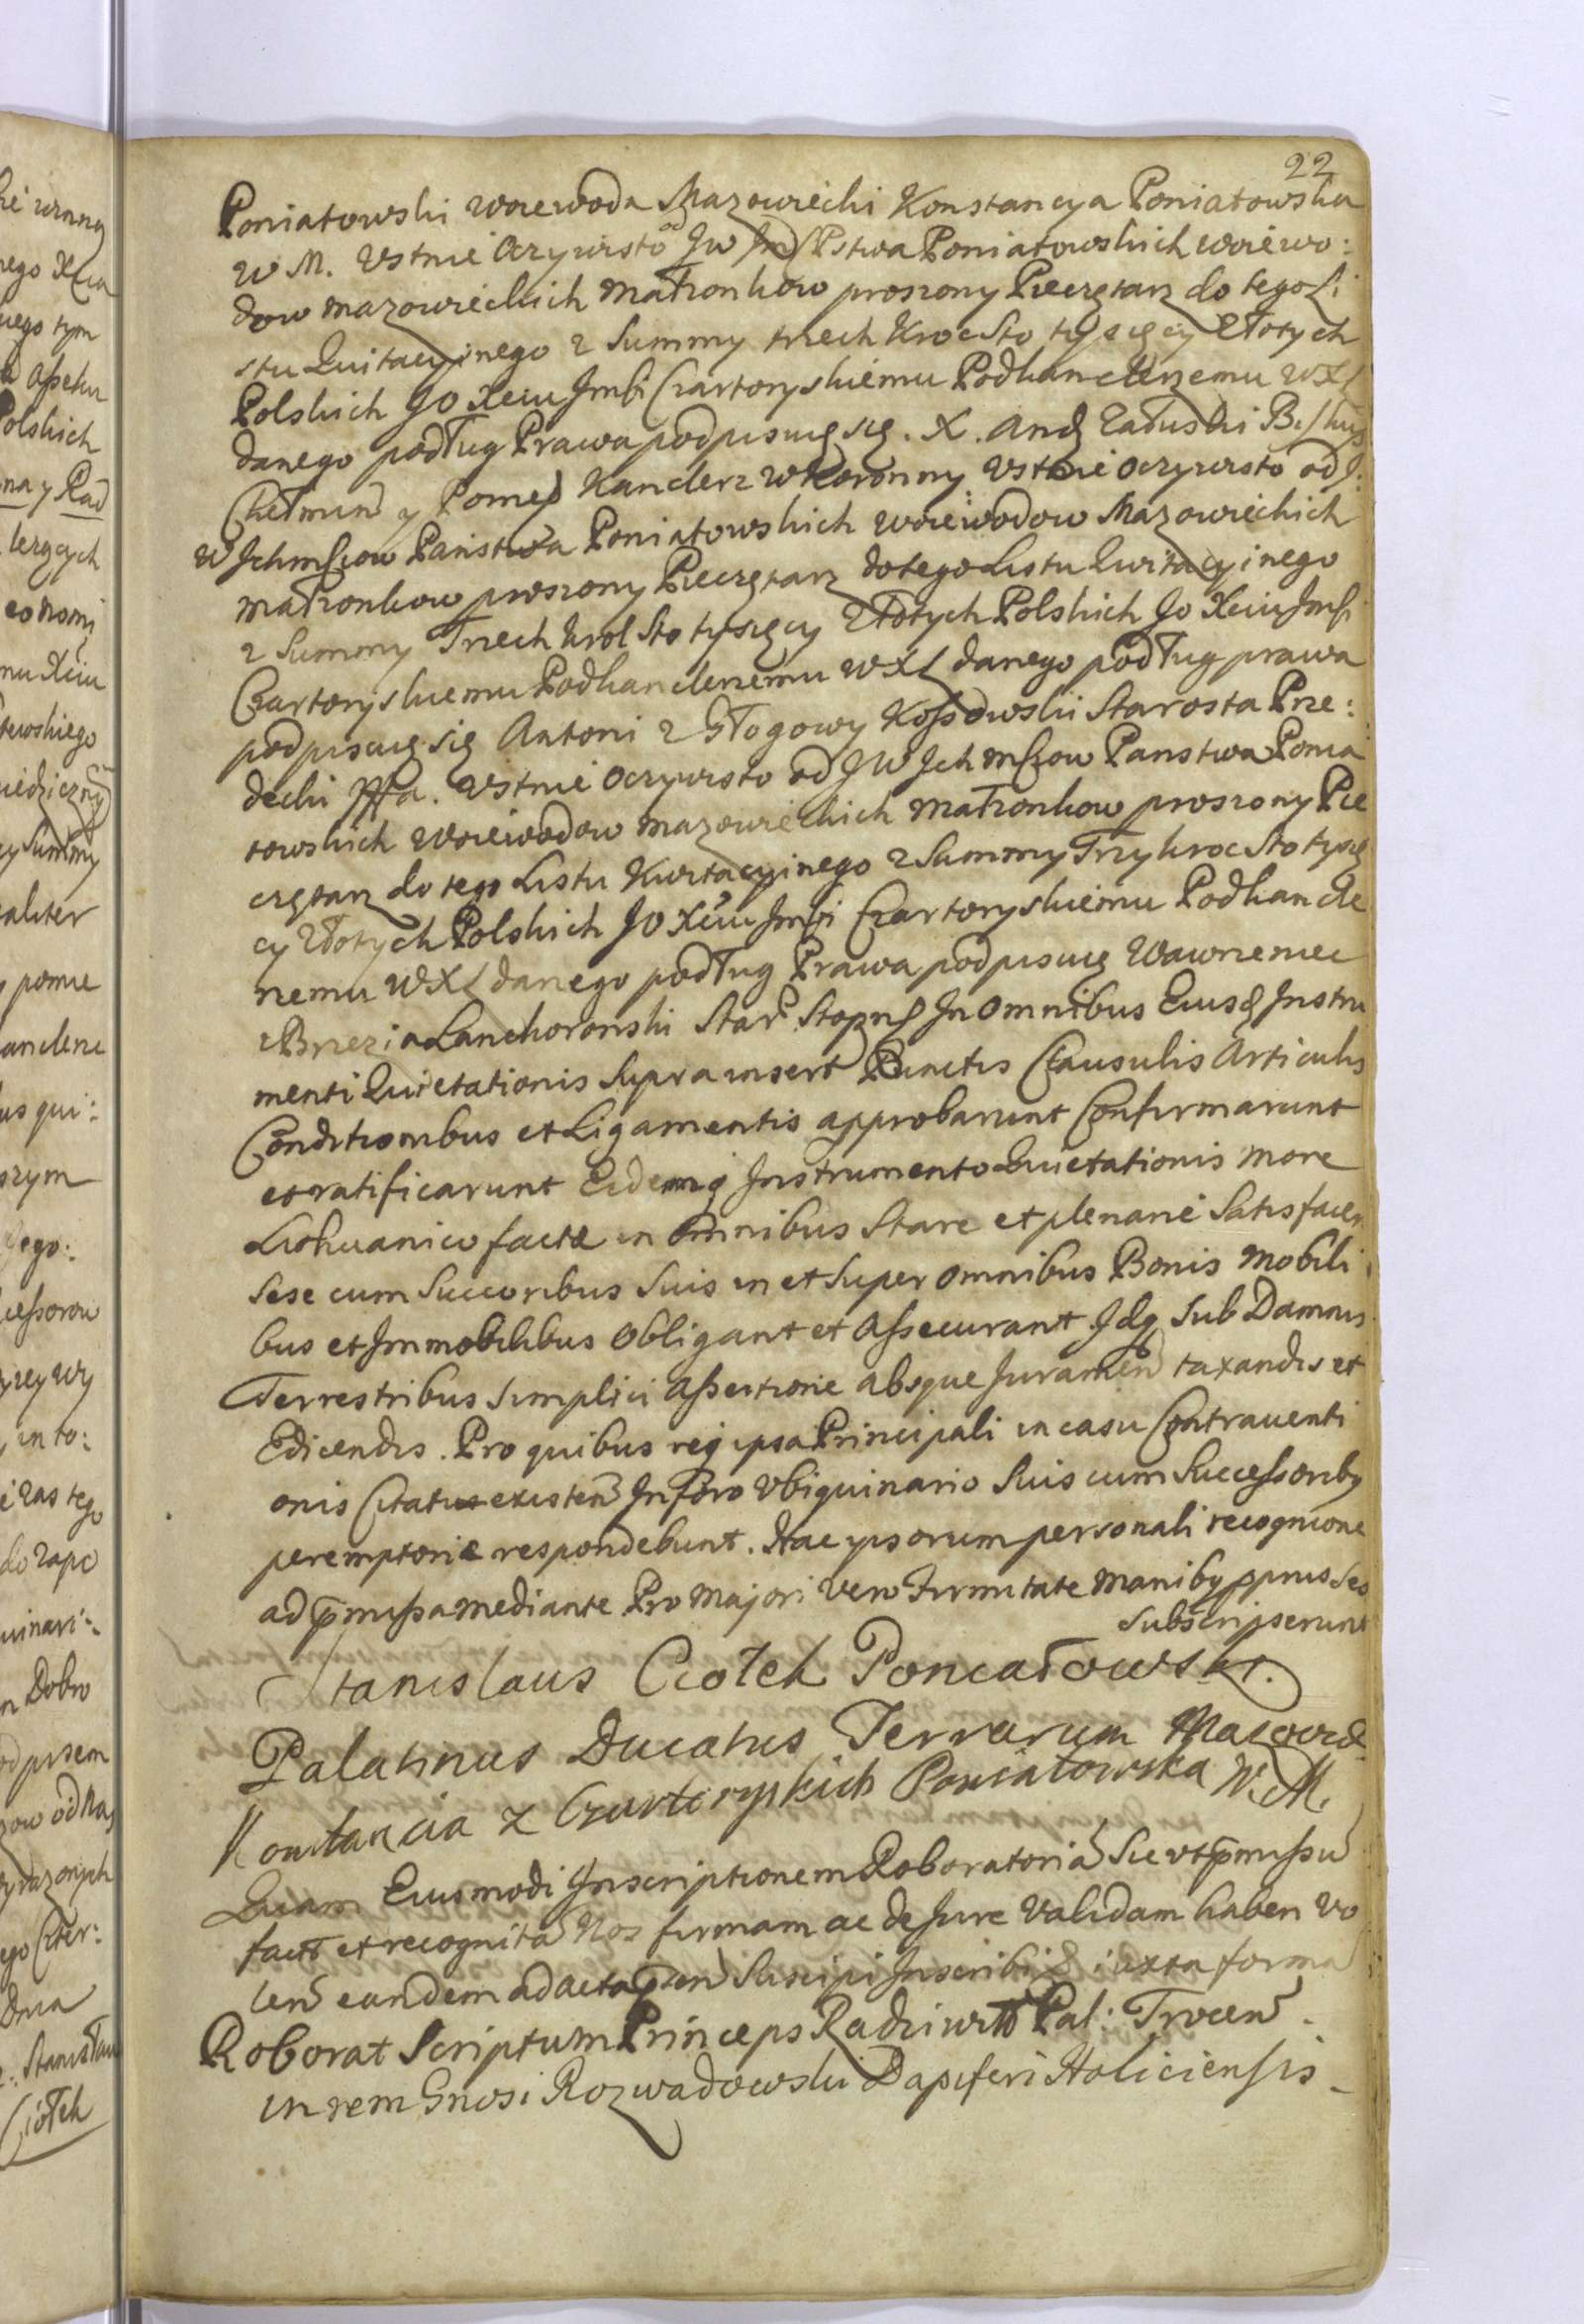 22
Poniatowski Woiewoda Mazowiecki Konstancya Poniatowska
W M. Ustnie Oczywisto od JW Im Pstwa Poniatowskich Woiewo:
dow Mazowieckich Małzonkow proszony Pieczętarz do tego Li
stu Quitacyinego z Summy trzech Kroć Sto tysięcy Złotych
Polskich JO Xciu Jmści Czartoryskiemu Podkanclerzemu WXL
danego podług Prawa podpisuię się. X. And Załuski Biskup
Chełmin y Pomez Kanclerz W Koronny Ustnie Oczywisto od J:
W Jchmściow Państwa Poniatowskich Woiewodow Mazowieckich
Małzonkow proszony Pieczętarz do tego Listu Quitacyinego
z Summy Trzech kroć Sto tysięcy Złotych Polskich Jo Xciu Jmści
Czartoryskiemu Podkanclerzemu WXL danego podług prawa
podpisuię się Antoni z Głogowy Kossowski Starosta Prze:
decki mppa. Ustnie Oczywisto od JW Jch mściow Panstwa Ponia
towskich Woiewodow Mazowieckich Małzonkow proszony Pie
czętarz do tego Listu Kwitacyinego z Summy Trzykroc Sto tysię
cy Złotych Polskich JO Xciu Jmści Czartoryskiemu Podkancle
rzemu WXL danego podług Prawa podpisuię Wawrzeniec
z Brzezia Lanckoronski Star Stopn In Omnibus Eiusq Instru
menti Quietationis Supra insert Punctis Clausulis Articulis
Conditionibus et Ligamentis approbarunt Confirmarunt
et ratificarunt Eidemq Instrumento Quietationis more
Lithuanico factae in Omnibus Stare et plenarie Satisfacer
Sese cum Succoribus Suis in et Super omnibus Bonis Mobili
bus et Immobilibus Obligant et Assecurant Idq Sub Damnis
Terrestribus Simplici Assertione absque Juramen taxandis et
Edicendis. Pro quibus req ipsa Principali in casu Contraventi
onis Citati existen In foro Ubiquinario Suis cum Successoribq
peremptorie respondebunt. Hac ipsorum personali recognione
ad pmissa mediante Pro Majori vero Firmitate Manibq pprijs Se
Subscripserunt
Stanislaus Ciołek Poniatowski.
Palatinus Ducatus Terrarum Mazovie
Konstancia z Czartoryskich Poniatowska W. M.
Quam Eiusmodi Inscriptionem Roboratoria Sic ut pmissu
fact et recognita Nos firmam ac de Jure Validam haberi Vo
len eandem ad acta pten Suscipi Inscribi iuxta forma
Roborat Scriptum Princeps Radziwiłł Pal: Trocen.
in rem Gnosi Rozwadowski Dapiferi Haliciensis